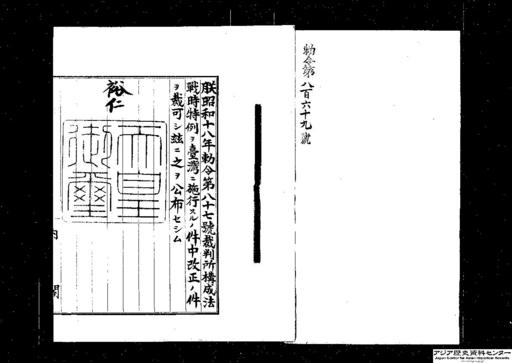 勅令第八百六十九號
朕昭和十八年勅令第八十七號裁判所構成法
戰時特例ヲ臺灣ニ施行スルノ件中改正ノ件
ヲ裁可シ玆ニ之ヲ公布セシム
裕仁
天皇
御璽
内
閣
アジア歴史資料センター
Japan Center for Asian Historical Records